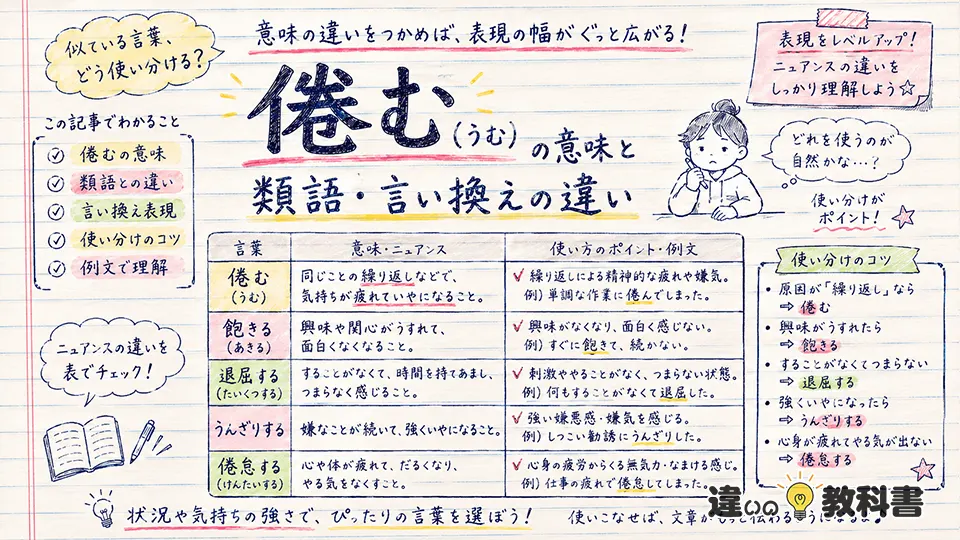 似ている言葉、
どう使い分ける?
意味の違いをつかめば、表現の幅がぐっと広がる!
表現をレベルアップ!
ニュアンスの違いを
しっかり理解しよう☆
この記事でわかること
倦むの意味
類語との違い
言い換え表現
使い分けのコツ
例文で理解
倦む(うむ)の意味と
類語・言い換えの違い
どれを使うのが
自然かな…?
使い分けが
ポイント!
ニュアンスの違いを
表でチェック!
言葉 意味・ニュアンス 使い方のポイント・例文
倦む
(うむ)
同じことの繰り返しなどで、
気持ちが疲れていやになること。
繰り返しによる精神的な疲れや嫌気。
例) 単調な作業に倦んでしまった。
飽きる
(あきる)
興味や関心がうすれて、
面白くなくなること。
興味がなくなり、面白く感じない。
例) すぐに飽きて、続かない。
退屈する
(たいくつする)
することがなくて、時間を持てあまし、
つまらなく感じること。
刺激ややることがなく、つまらない状態。
例) 何もすることがなくて退屈した。
うんざりする
嫌なことが続いて、強くいやになること。
強い嫌悪感・嫌気を感じる。
例) しつこい勧誘にうんざりした。
倦怠する
(けんたいする)
心や体が疲れて、だるくなり、
やる気をなくすこと。
心身の疲労からくる無気力・なまける感じ。
例) 仕事の疲れで倦怠してしまった。
使い分けのコツ
・原因が「繰り返し」なら
⇒ 倦む
・興味がうすれたら
⇒ 飽きる
・することがなくてつまらない
⇒ 退屈する
・強くいやになったら
⇒ うんざりする
・心身が疲れてやる気が出ない
⇒ 倦怠する
状況や気持ちの強さで、ぴったりの言葉を選ぼう!
使いこなせば、文章が
違いの教科書